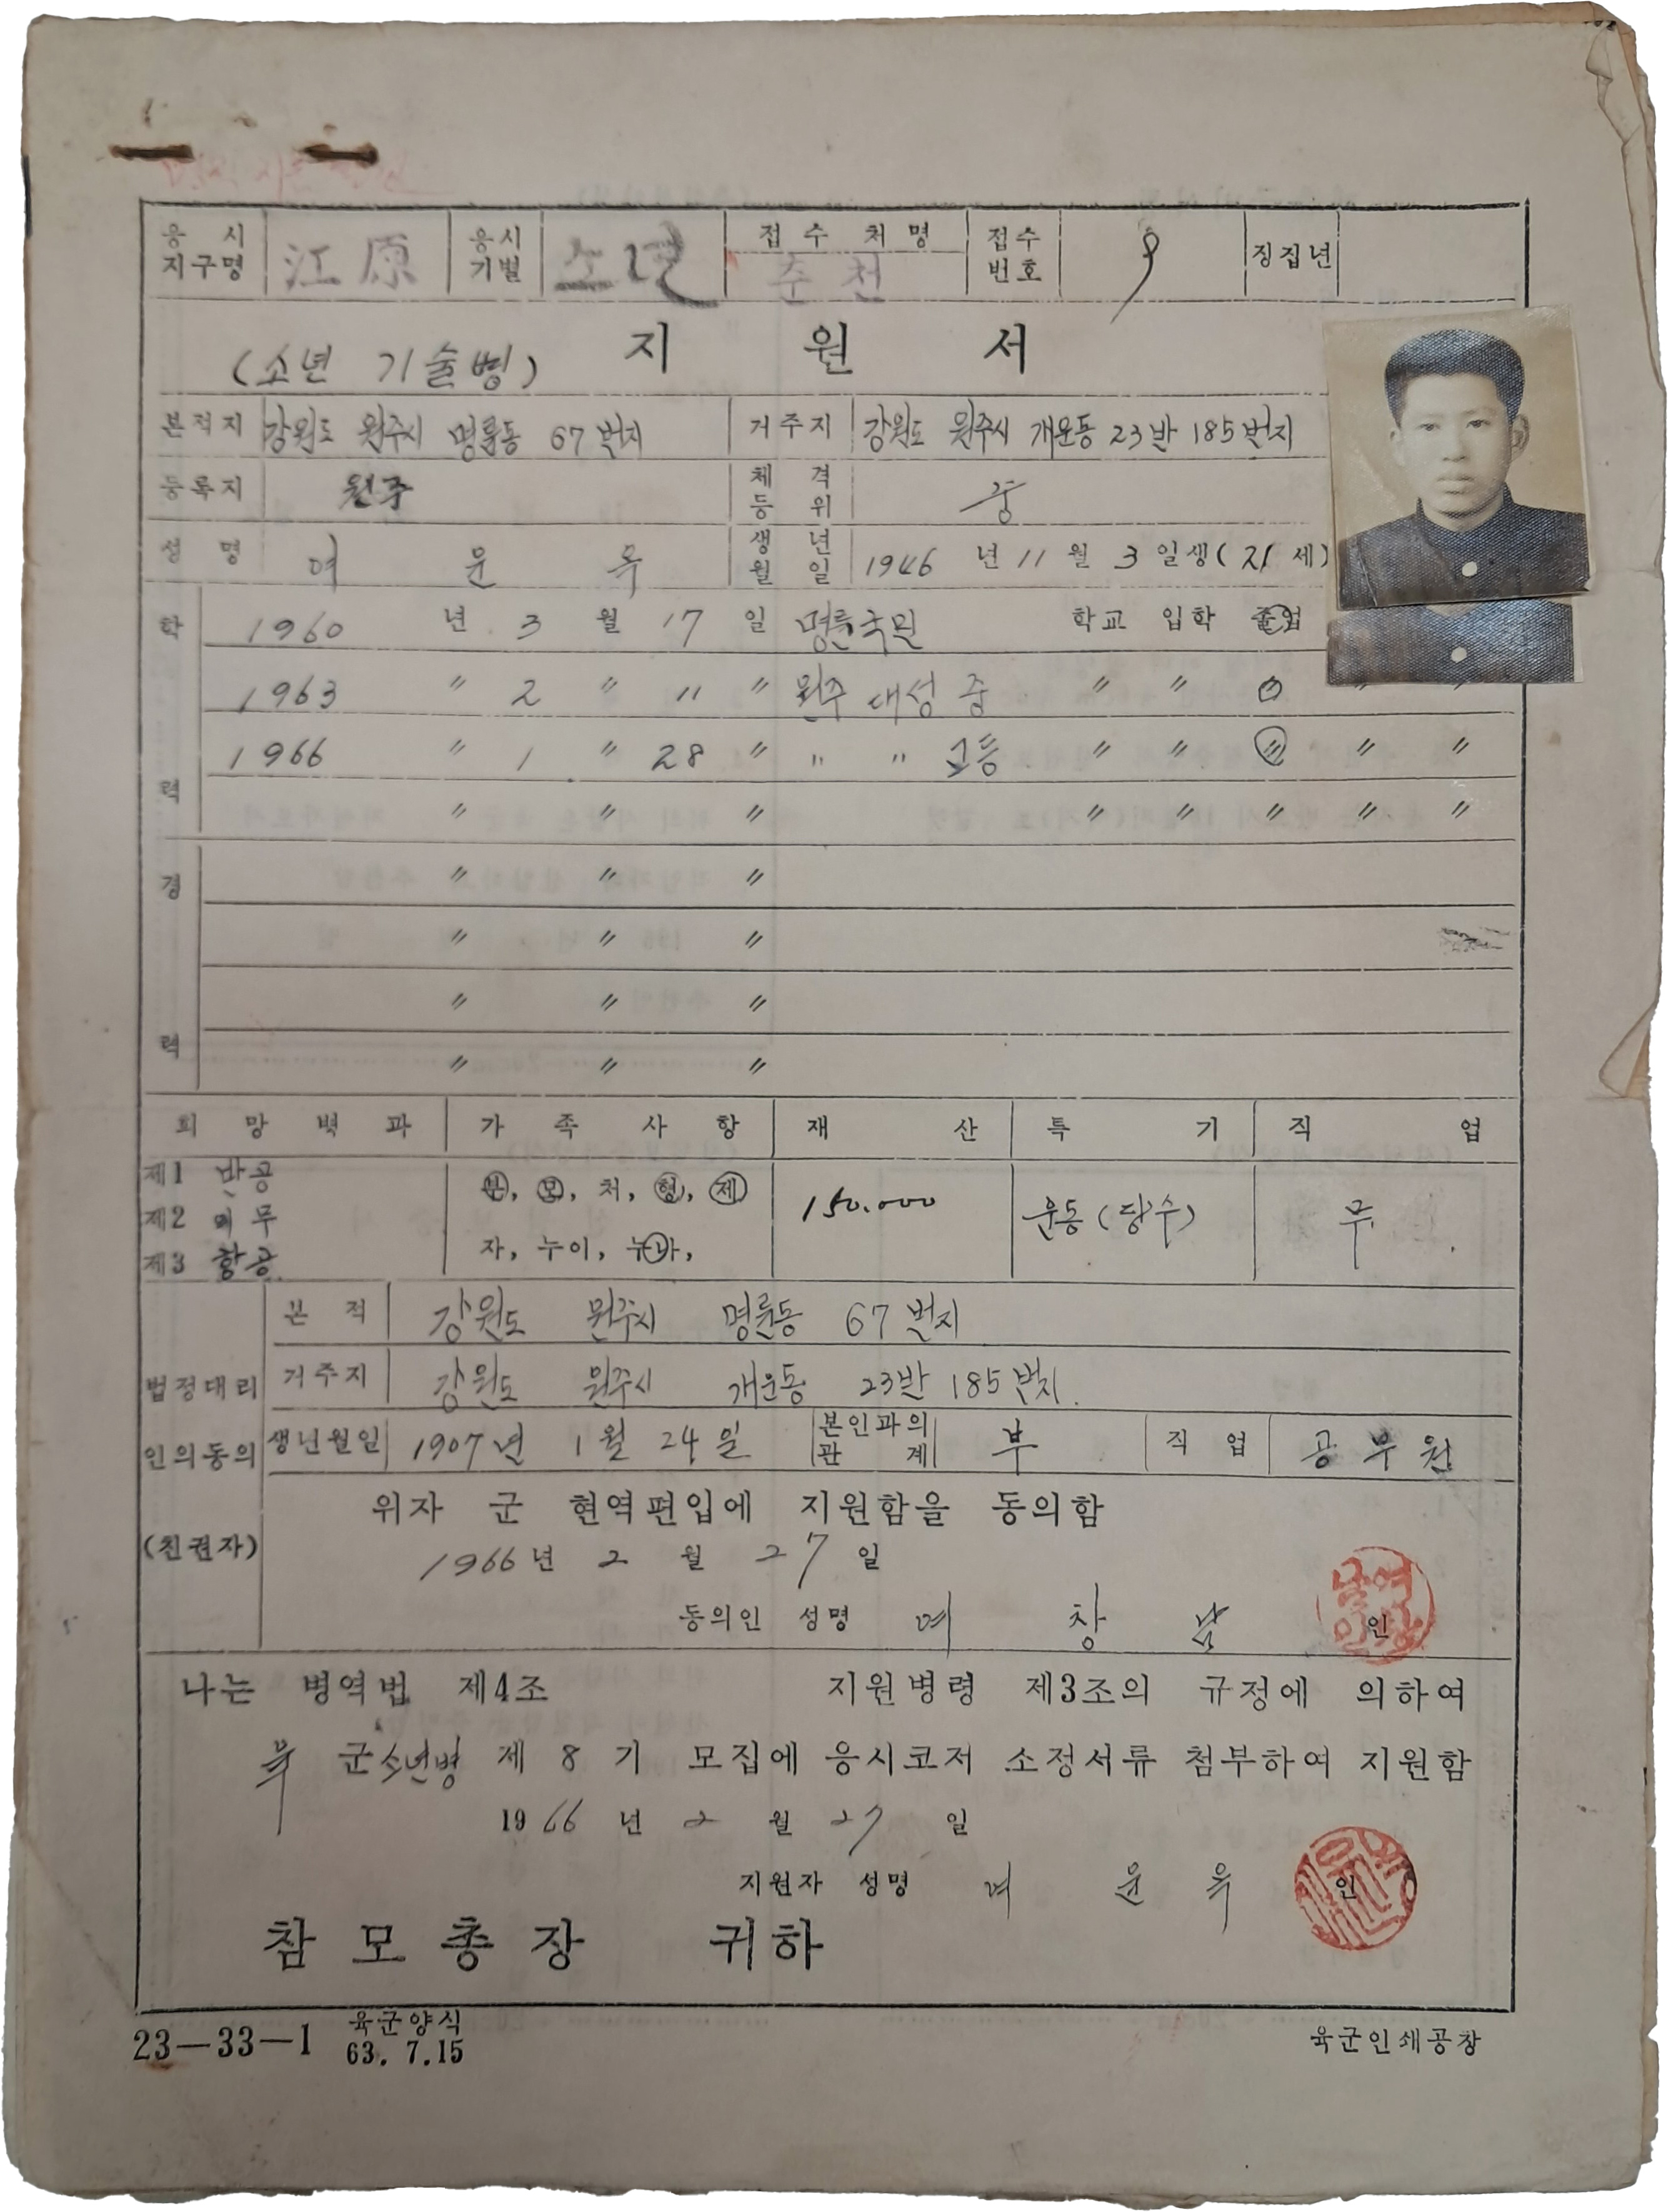 응시지구명 江原 응시기별 소년 접수처명 춘천 접수번호 9 징집년
지원서
(소년 기술병)
본적지 강원도 원주시 명륜동 67번지 거주지 강원도 원주시 개운동 23반 185번지
등록지 원주 체격등위
성명 여 운 욱 생년월일 1946년 11월 3일생(21세)
학 1960년 3월 17일 명륜국민 학교 입학 졸업
1963 〃 2 〃 11 〃 원주 대성 중 〃 〃 〃 〃
1966 〃 1 〃 28 〃 〃 〃 고등 〃 〃 〃 〃 〃
력 〃 〃 〃 〃 〃 〃 〃 〃
경 〃 〃 〃
〃 〃 〃
〃 〃 〃
력 〃 〃 〃
희망병과 가족사항 재산 특기 직업
제1 반공
제2 의무
제3 항공
부, 모, 처, 형, 제
자, 누이, 누나,
150.000
운동(당수)
무.
법정대리인의동의
(친권자)
본적 강원도 원주시 명륜동 67번지
거주지 강원도 원주시 개운동 23반 185번지.
생년월일 1907년 1월 24일 본인과의관계 부 직업 공무원
위자 군 현역편입에 지원함을 동의함
1966년 2월 27일
동의인 성명 여 창 남 인
나는 병역법 제4조 지원병령 제3조의 규정에 의하여
육군소년병 제8기 모집에 응시코저 소정서류 첨부하여 지원함
1966년 2월 27일
지원자 성명 여 운 욱 인
참모총장 귀하
23-33-1 육군양식 63. 7.15
육군인쇄공창